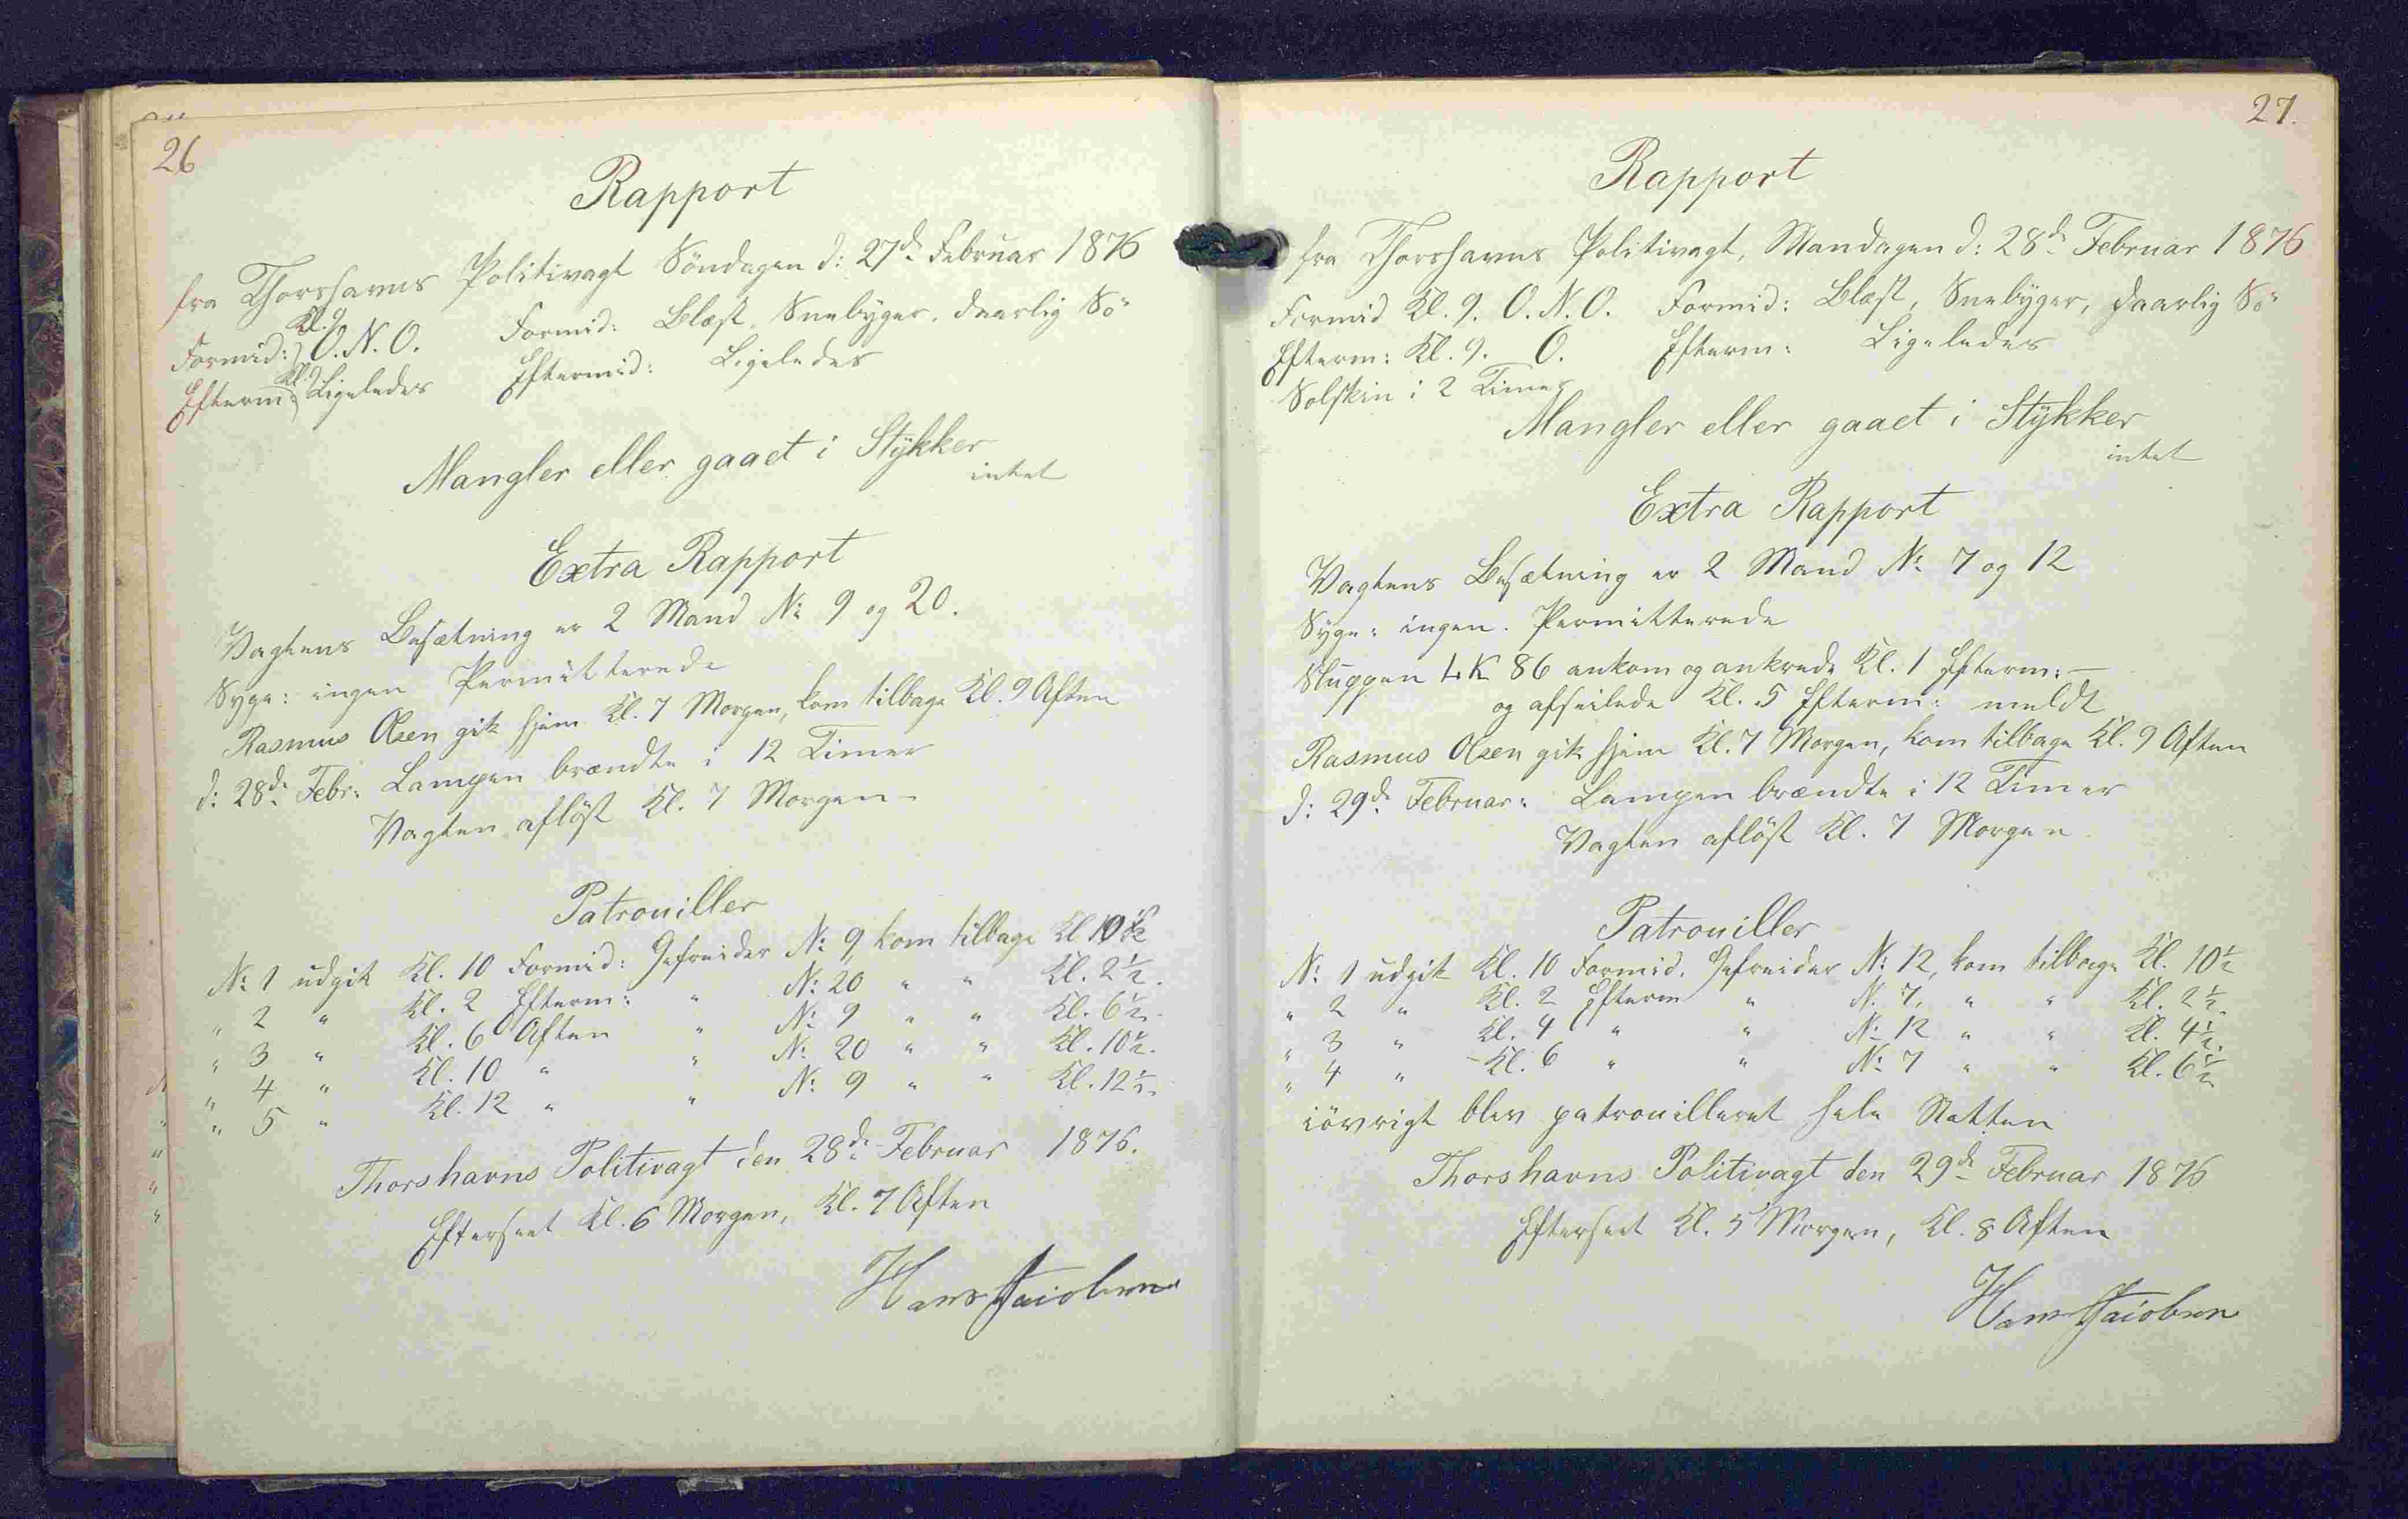 26
Rapport
fra Thorshavns Politivagt Söndagen d: 27d. Februar 1876
Formid: Kl. 9 O.N.O. Formid: Blæst, Sneebyger, daarlig Sö
Efterm: Kl. 9 Ligeledes Eftermid: Ligeledes
Mangler eller gaaet i Stykker
intet
Extra Rapport
Vagtens Besætning er 2 Mand No. 9 og 20.
Syge: ingen Permitterede
Rasmus Olsen gik hjem Kl. 7 Morgen, kom tilbage Kl. 9 Aften
d: 28de Febr: Lampen brændte i 12 Timer
Vagten aflöst Kl. 7 Morgen
Patrouiller
No. 1 udgik Kl. 10 Formid: Gefreider No. 9, kom tilbage Kl 10½
" 2 " Kl. 2 Efterm: " No. 20 " " Kl. 2½.
" 3 " Kl. 6 Aften " No. 9 " " Kl. 6½.
" 4 " Kl. 10 " " No. 20 " " Kl. 10½.
" 5 " Kl. 12 " " No. 9 " " Kl. 12½.
Thorshavns Politivagt den 28de Februar 1876.
Efterseet Kl. 6 Morgen, Kl. 7 Aften
Hans Jaiobsen
27.
Rapport
fra Thorshavns Politivagt, Mandagen d: 28de Februar 1876
Formid Kl. 9. O.N.O. Formid: Blæst, Snebyger, daarlig Sö
Efterm: Kl. 9. O. Efterm: Ligeledes
Solskin i 2 Timer
Mangler eller gaaet i Stykker
intet
Extra Rapport
Vagtens Besætning er 2 Mand No. 7 og 12
Syge: ingen. Permitterede
Sluppen LK 86 ankom og ankrede Kl. 1 Efterm:
og afseilede Kl. 5 Efterm: meldt
Rasmus Olsen gik hjem Kl. 7 Morgen, kom tilbage Kl. 9 Aften
d: 29de Februar: Lampen brændte i 12 Timer
Vagten aflöst Kl. 7 Morgen
Patrouiller
No. 1 udgik Kl. 10 Formid. Gefreider No. 12, kom tilbage Kl. 10½
" 2 " Kl. 2 Efterm " No. 7, " " Kl. 2½.
" 3 " Kl. 4 " " No. 12 " " Kl. 4½.
" 4 " Kl. 6 " " No. 7 " " Kl. 6½
iövrigt blev patrouilleret hele Natten
Thorshavns Politivagt den 29de Februar 1876
Efterseet Kl. 5 Morgen, Kl. 8 Aften
Hans Jaiobsen